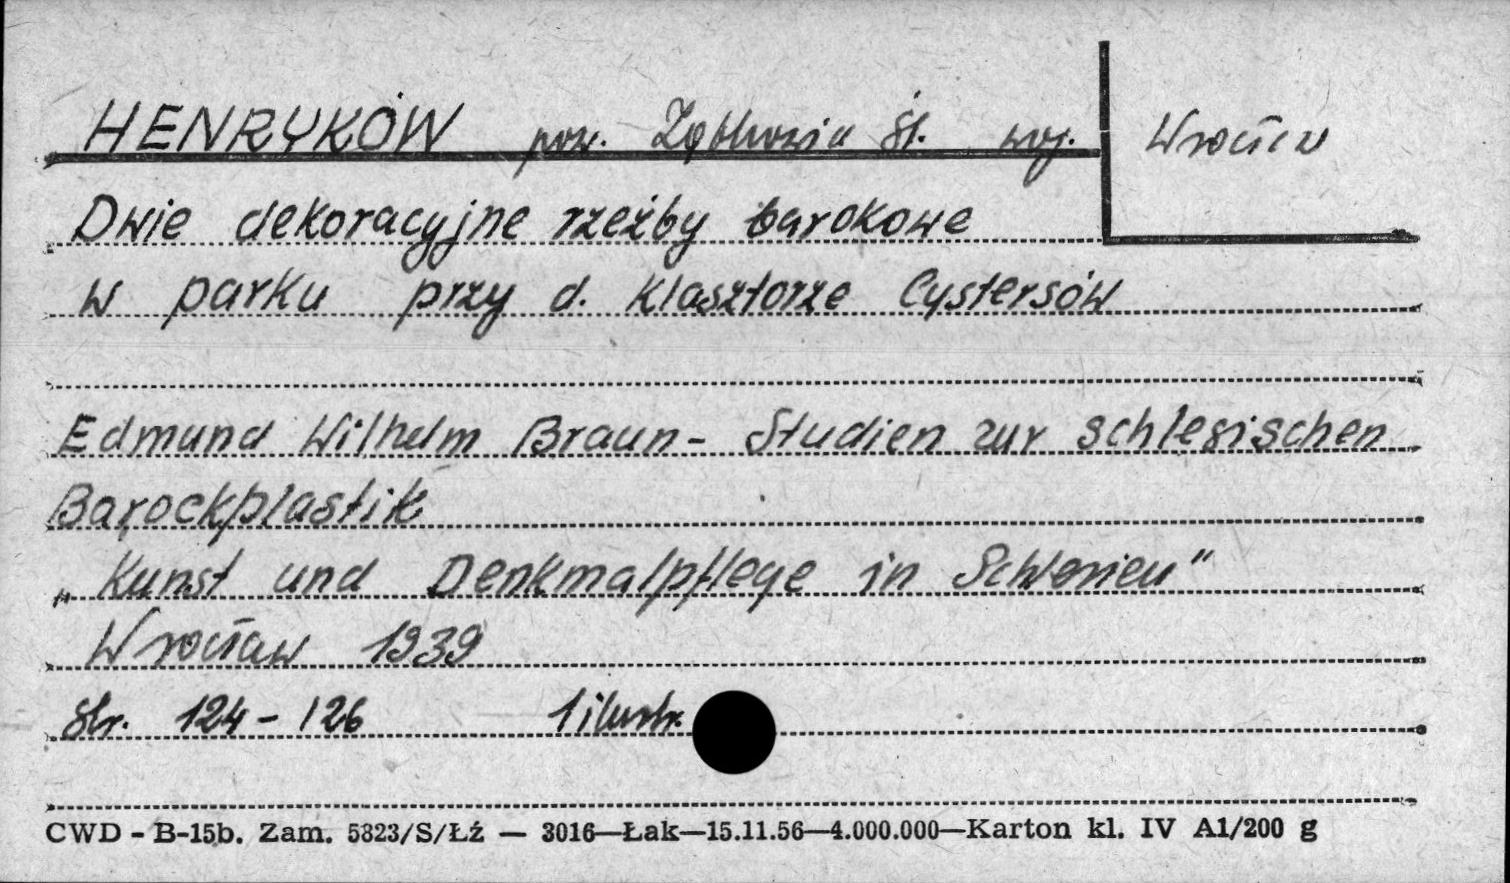 HENRYKÓW pow. Ząbkowice Śl. woj. Wrocław
Dwie dekoracyjne rzeźby barokowe
w parku przy d. klasztorze Cystersów
Edmund Wilhelm Braun - Studien zur schlesischen
Barockplastik
„Kunst und Denkmalpflege in Schlesien"
Wrocław 1939
str. 124-126 1 ilustr.
CWD - B-15b. Zam. 5823/S/Łź — 3016—Łak—15.11.56—4.000.000—Karton kl. IV A1/200 g